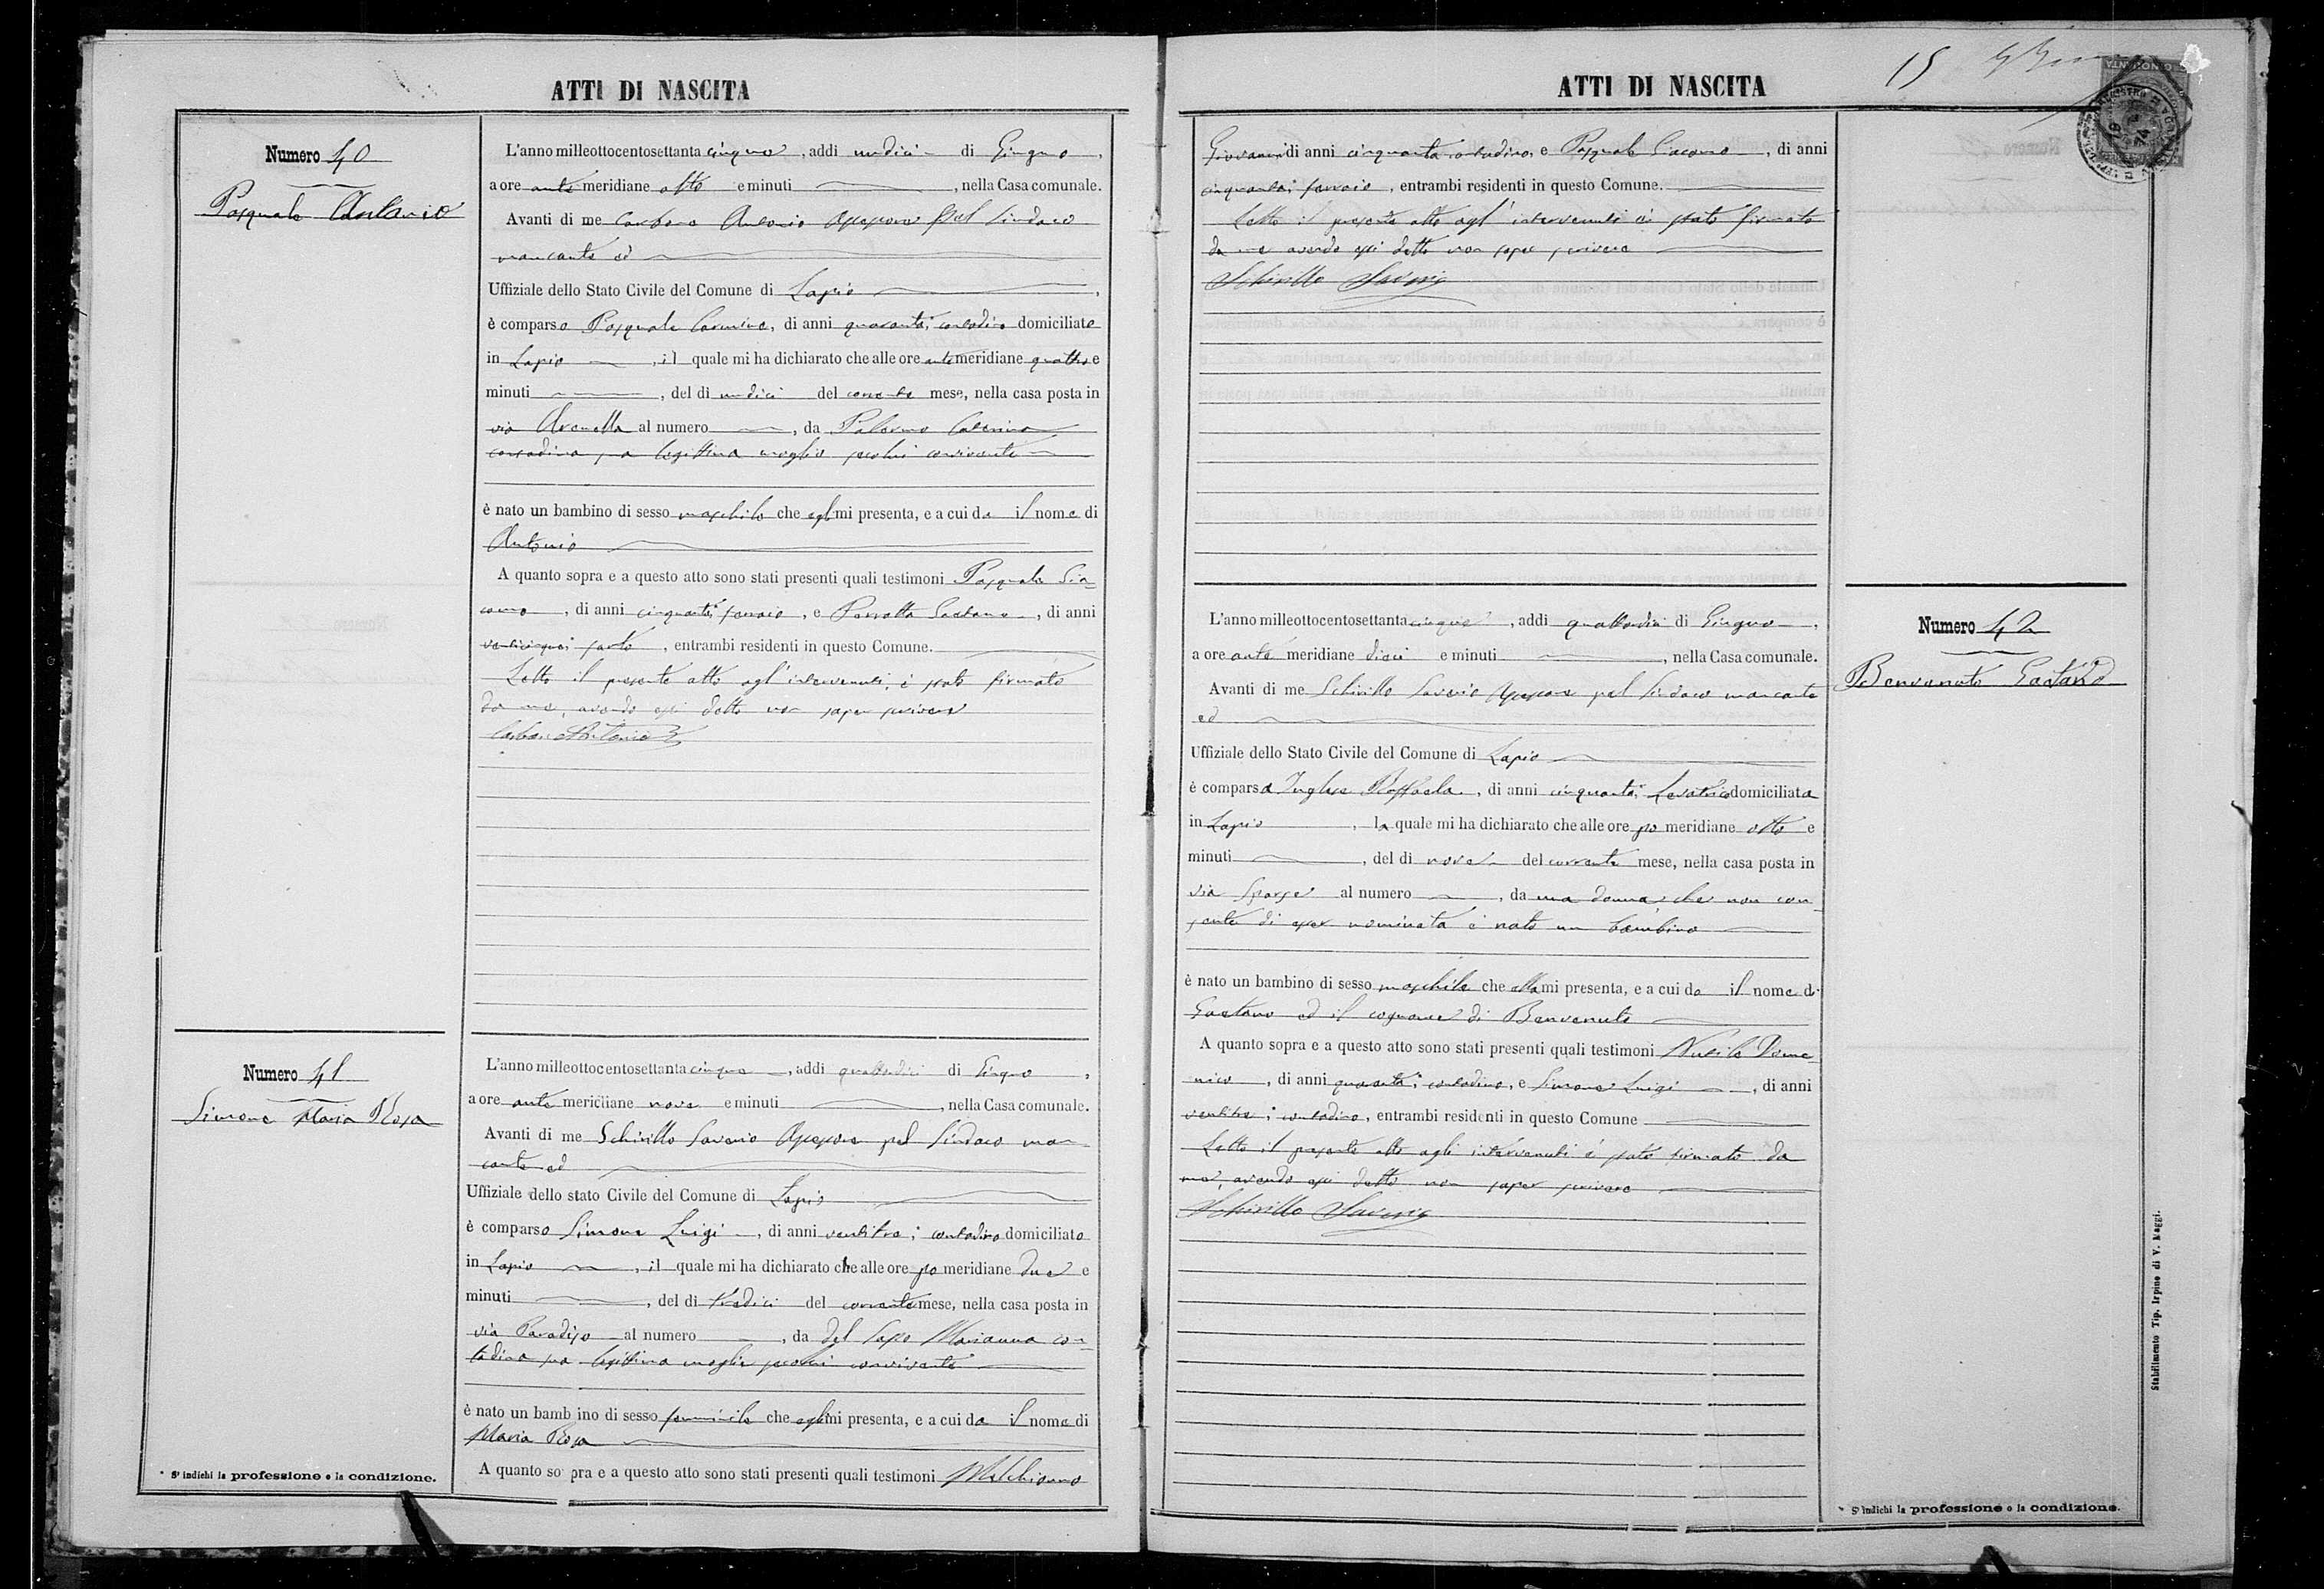 ATTI DI NASCITA
Numero 40
Pasquale Antonio
L'anno milleottocentosettanta cinque, addi undici di Giugno,
a ore ante meridiane otto e minuti , nella Casa comunale.
Avanti di me Carbone Antonio Assessore pel Sindaco
mancante ed
Uffiziale dello Stato Civile del Comune di Lapio,
è comparso Pasquale Carmine, di anni quaranta; contadino domiciliato
in Lapio, il quale mi ha dichiarato che alle ore antemeridiane quattro e
minuti , del dì undici del corrente mese, nella casa posta in
via Arenella al numero , da Palermo Caterina
contadina sua legittima moglie secolui convivente
è nato un bambino di sesso maschile che egli mi presenta, e a cui da il nome di
Antonio
A quanto sopra e a questo atto sono stati presenti quali testimoni Pasquale Gia-
como, di anni cinquanta; ferraio, e Perrotta Gaetano, di anni
venticinque; sarto, entrambi residenti in questo Comune.
Letto il presente atto agl'intervenuti, è stato firmato
da me, avendo essi detto non saper scrivere
Carbone Antonio
Numero 41
Simone Maria Rosa
L'anno milleottocentosettanta cinque, addi quattordici di Giugno,
a ore ante meridiane nove e minuti , nella Casa comunale.
Avanti di me Schirillo Saverio Assessore pel Sindaco man
cante ed
Uffiziale dello stato Civile del Comune di Lapio
è comparso Simone Luigi, di anni ventitre; contadino domiciliato
in Lapio, il quale mi ha dichiarato che alle ore po meridiane due e
minuti , del dì tredici del corrente mese, nella casa posta in
via Paradiso al numero , da Del Sapo Marianna con-
tadina sua legittima moglie secolui convivente
è nato un bambino di sesso femminile che egli mi presenta, e a cui da il nome di
Maria Rosa
A quanto sopra e a questo atto sono stati presenti quali testimoni Melchionno
* S'indichi la professione o la condizione.
ATTI DI NASCITA
15
Giovanni di anni cinquanta contadino, e Pasquale Giacomo, di anni
cinquanta; ferraio, entrambi residenti in questo Comune.
Letto il presente atto agl'intervenuti è stato firmato
da me avendo essi detto non saper scrivere
Schirillo Saverio
Numero 42
Benvenuto Gaetano
L'anno milleottocentosettanta cinque, addi quattordici di Giugno,
a ore ante meridiane dieci e minuti , nella Casa comunale.
Avanti di me Schirillo Saverio Assessore pel Sindaco mancante
ed
Uffiziale dello Stato Civile del Comune di Lapio
è comparsa Inglese Raffaela, di anni cinquanta; Levatrice domiciliata
in Lapio, la quale mi ha dichiarato che alle ore po meridiane otto e
minuti , del dì nove del corrente mese, nella casa posta in
via al numero , da una donna che non con-
sente di esser nominata è nato un bambino
è nato un bambino di sesso maschile che ella mi presenta, e a cui da il nome di
Gaetano ed il cognome di Benvenuto
A quanto sopra e a questo atto sono stati presenti quali testimoni Dome
nico, di anni quaranta; contadino, e Simone Luigi, di anni
ventitre; contadino, entrambi residenti in questo Comune
Letto il presente atto agli intervenuti è stato firmato da
me, avendo essi detto non saper scrivere
Schirillo Saverio
* S'indichi la professione o la condizione.
Stabilimento Tip. Irpino di V. Maggi.